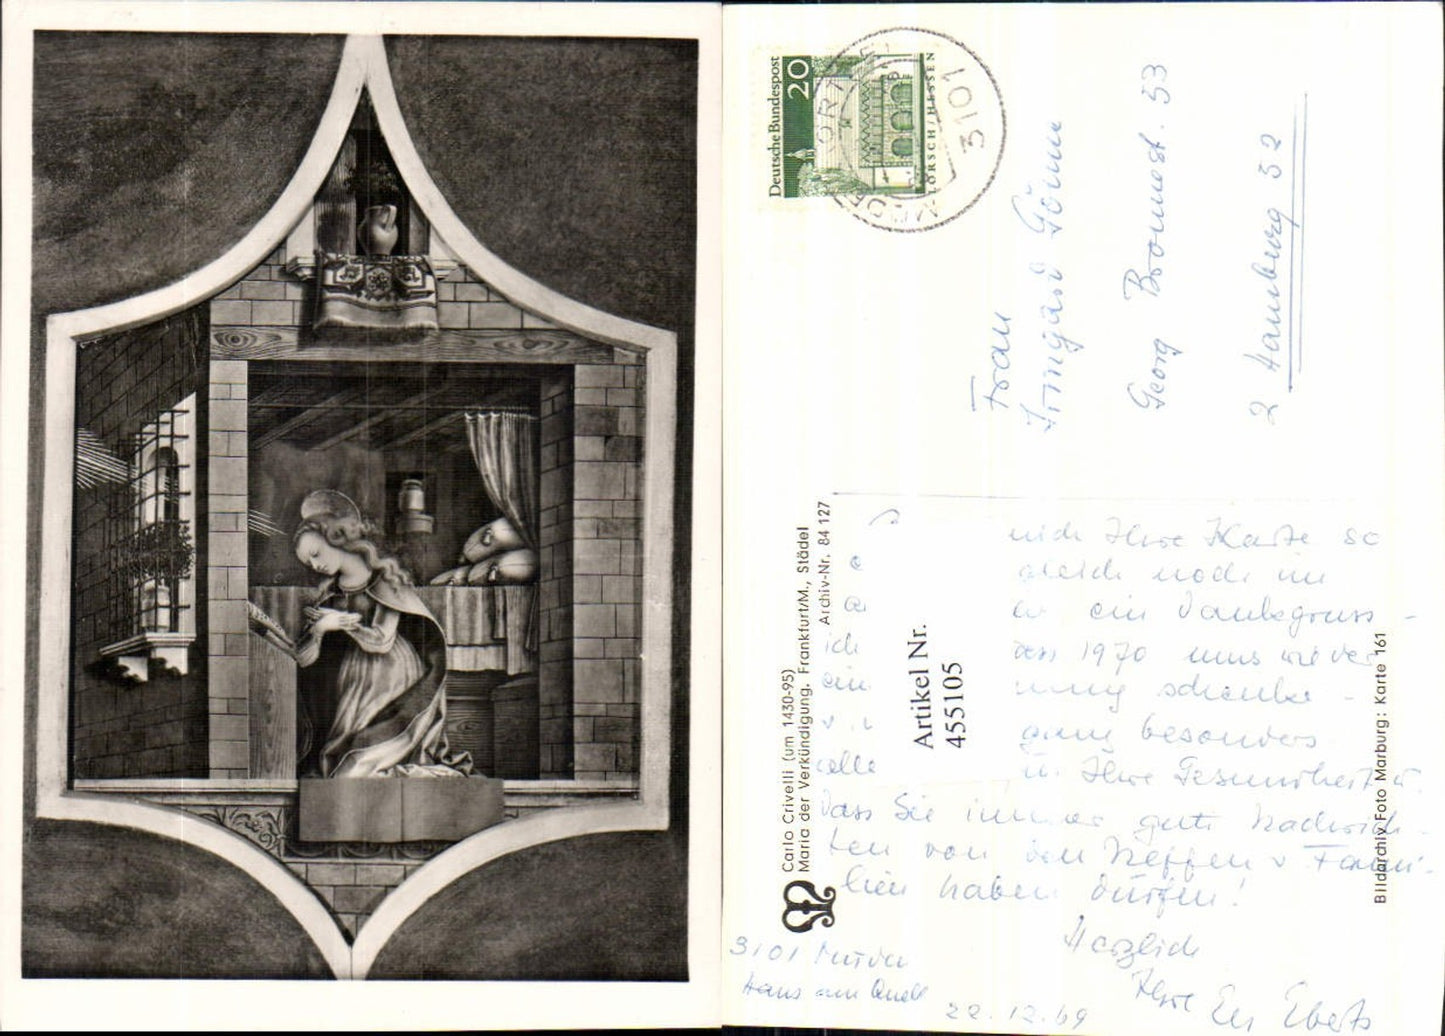 Deutsche Bundespost
20
LORSCH/HESSEN
3101
Frau
Irmgard
Georg
53
2 Hamburg 52
Carlo Crivelli (um 1430-95)
Maria der Verkündigung. Frankfurt/M., Städel
Archiv-Nr. 84 127
Artikel Nr.
455105
Bildarchiv Foto Marburg: Karte 161
mich Ihre Karte so
gleich noch im
ein Dankesgruss-
ich dass 1970 uns wieder
ein schenke -
ganz besonders
alle u. Ihre Gesundheit u.
dass Sie immer gute Nachrich-
ten von den Neffen u Fami-
lien haben dürfen!
Herzlich
Ihre
3101
Haus am Quell
22.12.69